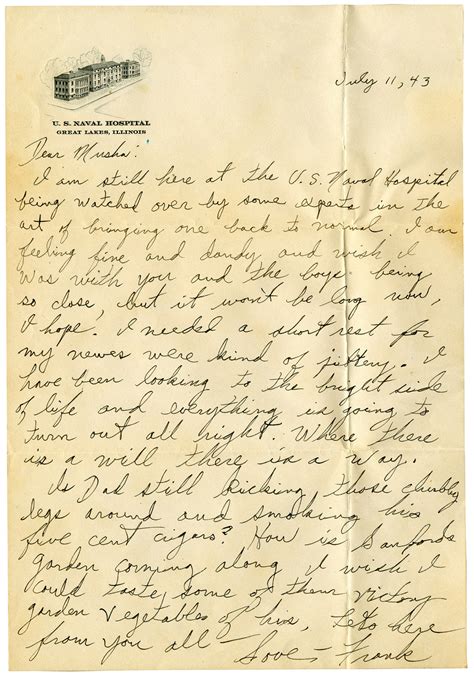 July 11, 43
U. S. NAVAL HOSPITAL
GREAT LAKES, ILLINOIS
Dear Musha:
I am still here at the U.S. Naval Hospital
being watched over by some experts in the
art of bringing one back to normal. I am
feeling fine and dandy and wish I
was with you and the boys being
so close, but it won't be long now,
I hope. I needed a short rest for
my nerves were kind of jittery. I
have been looking to the bright side
of life and everything is going to
turn out all right. Where there
is a will there is a way.
Is Dad still kicking those chubby
legs around and smoking his
five cent cigars? How is Sanford's
garden coming along I wish I
could taste some of them victory
garden vegetables of his, Lets here
from you all —
Love - Frank